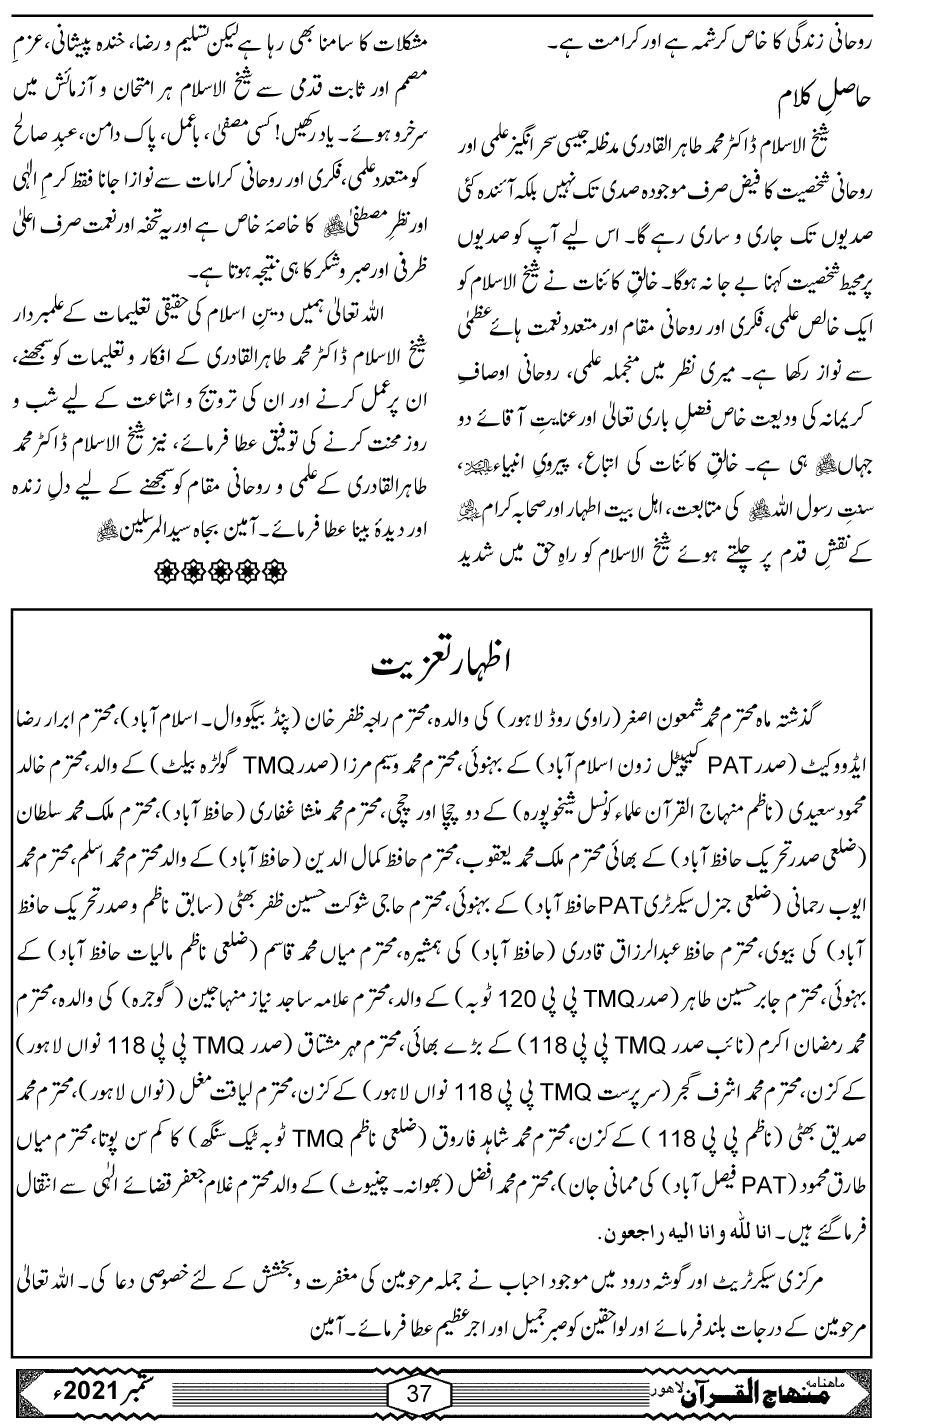 روحانی زندگی کا خاص کرشمہ ہے اور کرامت ہے۔
حاصلِ کلام
شیخ الاسلام ڈاکٹر محمد طاہر القادری مدظلہ جیسی سحر انگیز علمی اور
روحانی شخصیت کا فیض صرف موجودہ صدی تک نہیں بلکہ آئندہ کئی
صدیوں تک جاری و ساری رہے گا۔ اس لیے آپ کو صدیوں
پر محیط شخصیت کہنا بے جا نہ ہوگا۔ خالقِ کائنات نے شیخ الاسلام کو
ایک خالص علمی، فکری اور روحانی مقام اور متعدد نعمت ہائے عظمیٰ
سے نواز رکھا ہے۔ میری نظر میں منجملہ علمی، روحانی اوصافِ
کریمانہ کی ودیعت خاص فضلِ باری تعالیٰ اور عنایتِ آقائے دو
جہاں ﷺ ہی ہے۔ خالقِ کائنات کی اتباع، پیرویِ انبیاء علیہم السلام،
سنتِ رسول اللہ ﷺ کی متابعت، اہل بیت اطہار اور صحابہ کرام رضی اللہ عنہم
کے نقشِ قدم پر چلتے ہوئے شیخ الاسلام کو راہِ حق میں شدید
مشکلات کا سامنا بھی رہا ہے لیکن تسلیم و رضا، خندہ پیشانی، عزمِ
مصمم اور ثابت قدمی سے شیخ الاسلام ہر امتحان و آزمائش میں
سرخرو ہوئے۔ یاد رکھیں! کسی مصفیٰ، باعمل، پاک دامن، عبدِ صالح
کو متعدد علمی، فکری اور روحانی کرامات سے نوازا جانا فقط کرمِ الٰہی
اور نظرِ مصطفیٰ ﷺ کا خاصۂ خاص ہے اور یہ تحفہ اور نعمت صرف اعلیٰ
ظرفی اور صبر و شکر کا ہی نتیجہ ہوتا ہے۔
اللہ تعالیٰ ہمیں دینِ اسلام کی حقیقی تعلیمات کے علمبردار
شیخ الاسلام ڈاکٹر محمد طاہر القادری کے افکار و تعلیمات کو سمجھنے،
ان پر عمل کرنے اور ان کی ترویج و اشاعت کے لیے شب و
روز محنت کرنے کی توفیق عطا فرمائے، نیز شیخ الاسلام ڈاکٹر محمد
طاہر القادری کے علمی و روحانی مقام کو سمجھنے کے لیے دلِ زندہ
اور دیدۂ بینا عطا فرمائے۔ آمین بجاہ سید المرسلین ﷺ
اظہارِ تعزیت
گذشتہ ماہ محترم محمد شمعون اصغر (راوی روڈ لاہور) کی والدہ، محترم راجہ ظفر خان (پنڈ بیگووال۔ اسلام آباد)، محترم ابرار رضا
ایڈووکیٹ (صدر PAT کیپیٹل زون اسلام آباد) کے بہنوئی، محترم محمد وسیم مرزا (صدر TMQ گولڑہ بیلٹ) کے والد، محترم خالد
محمود سعیدی (ناظم منہاج القرآن علماء کونسل شیخوپورہ) کے دو چچا اور چچی، محترم محمد منشا غفاری (حافظ آباد)، محترم ملک محمد سلطان
(ضلعی صدر تحریک حافظ آباد) کے بھائی محترم ملک محمد یعقوب، محترم حافظ کمال الدین (حافظ آباد) کے والد محترم محمد اسلم، محترم محمد
ایوب رحمانی (ضلعی جنرل سیکرٹری PAT حافظ آباد) کے بہنوئی، محترم حاجی شوکت حسین ظفر بھٹی (سابق ناظم و صدر تحریک حافظ
آباد) کی بیوی، محترم حافظ عبدالرزاق قادری (حافظ آباد) کی ہمشیرہ، محترم میاں محمد قاسم (ضلعی ناظم مالیات حافظ آباد) کے
بہنوئی، محترم جابر حسین طاہر (صدر TMQ پی پی 120 ٹوبہ) کے والد، محترم علامہ ساجد نیاز منہاجین (گوجرہ) کی والدہ، محترم
محمد رمضان اکرم (نائب صدر TMQ پی پی 118) کے بڑے بھائی، محترم مہر مشتاق (صدر TMQ پی پی 118 نواں لاہور)
کے کزن، محترم محمد اشرف گجر (سرپرست TMQ پی پی 118 نواں لاہور) کے کزن، محترم لیاقت مغل (نواں لاہور)، محترم محمد
صدیق بھٹی (ناظم پی پی 118) کے کزن، محترم محمد شاہد فاروق (ضلعی ناظم TMQ ٹوبہ ٹیک سنگھ) کا کم سن پوتا، محترم میاں
طارق محمود (PAT فیصل آباد) کی ممانی جان)، محترم محمد افضل (بھوانہ۔ چنیوٹ) کے والد محترم غلام جعفر قضائے الٰہی سے انتقال
فرما گئے ہیں۔ انا للّٰہ وانا الیہ راجعون.
مرکزی سیکرٹریٹ اور گوشہ درود میں موجود احباب نے جملہ مرحومین کی مغفرت و بخشش کے لئے خصوصی دعا کی۔ اللہ تعالیٰ
مرحومین کے درجات بلند فرمائے اور لواحقین کو صبر جمیل اور اجر عظیم عطا فرمائے۔ آمین
ماہنامہ منہاج القرآن لاہور
37
ستمبر 2021ء